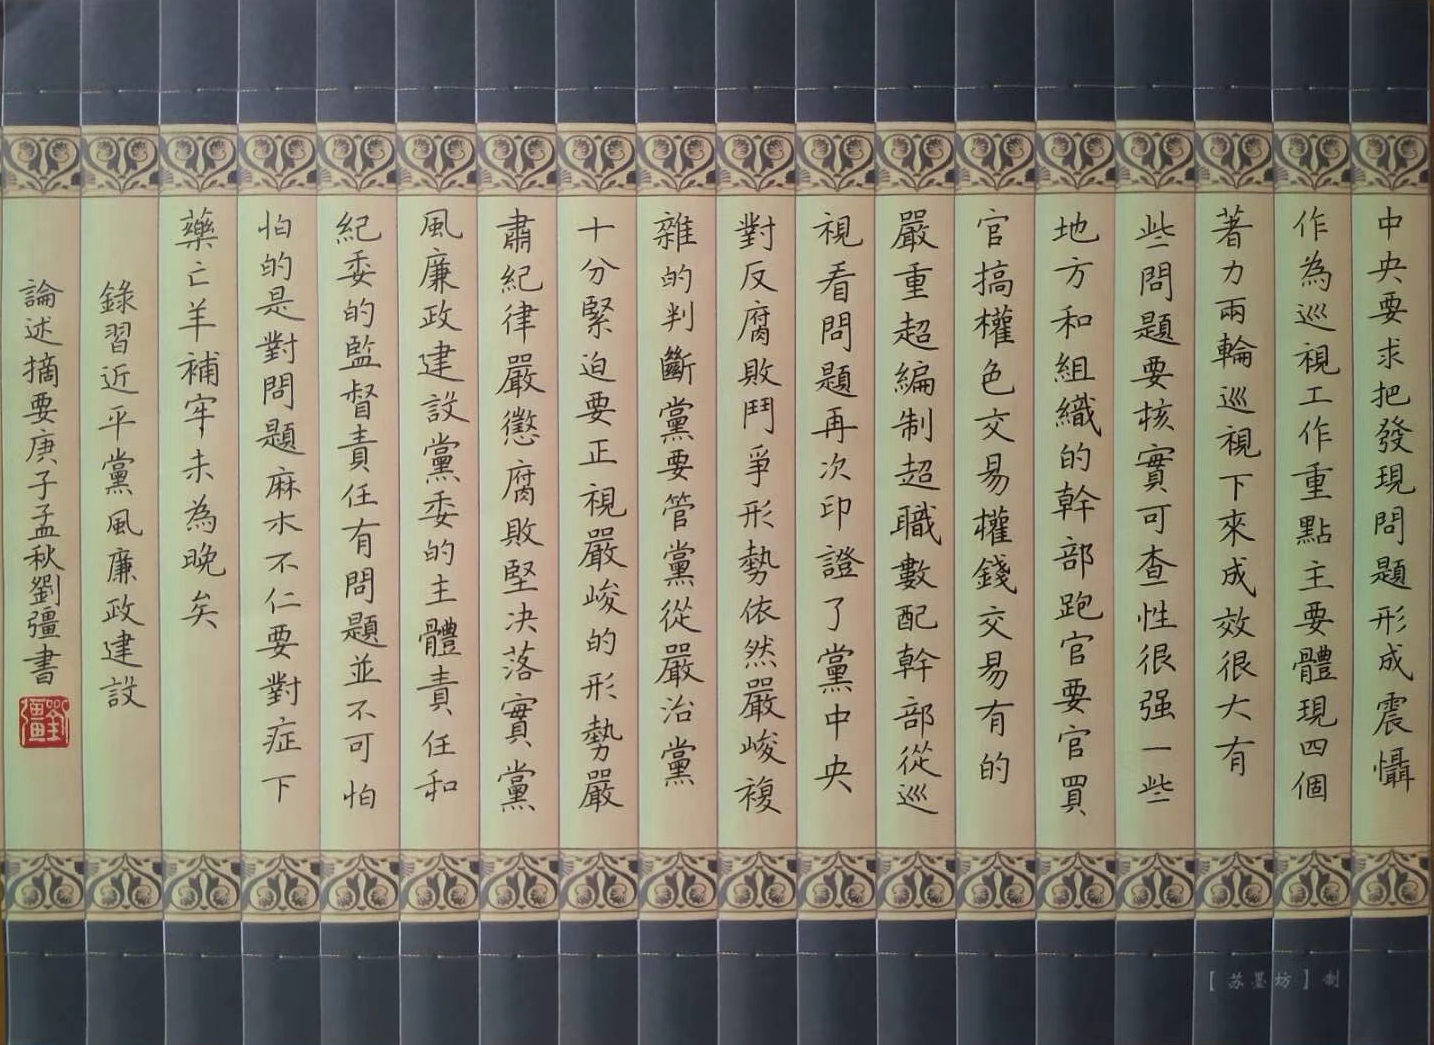 中央要求把發現問題形成震懾
作為巡視工作重點主要體現四個
著力兩輪巡視下來成效很大有
些問題要核實可查性很强一些
地方和組織的幹部跑官要官買
官搞權色交易權錢交易有的
嚴重超編制超職數配幹部從巡
視看問題再次印證了黨中央
對反腐敗鬥爭形勢依然嚴峻複
雜的判斷黨要管黨從嚴治黨
十分緊迫要正視嚴峻的形勢嚴
肅紀律嚴懲腐敗堅决落實黨
風廉政建設黨委的主體責任和
紀委的監督責任有問題並不可怕
怕的是對問題麻木不仁要對症下
藥亡羊補牢未為晚矣
錄習近平黨風廉政建設
論述摘要庚子孟秋劉彊書
劉彊
【苏墨坊】制